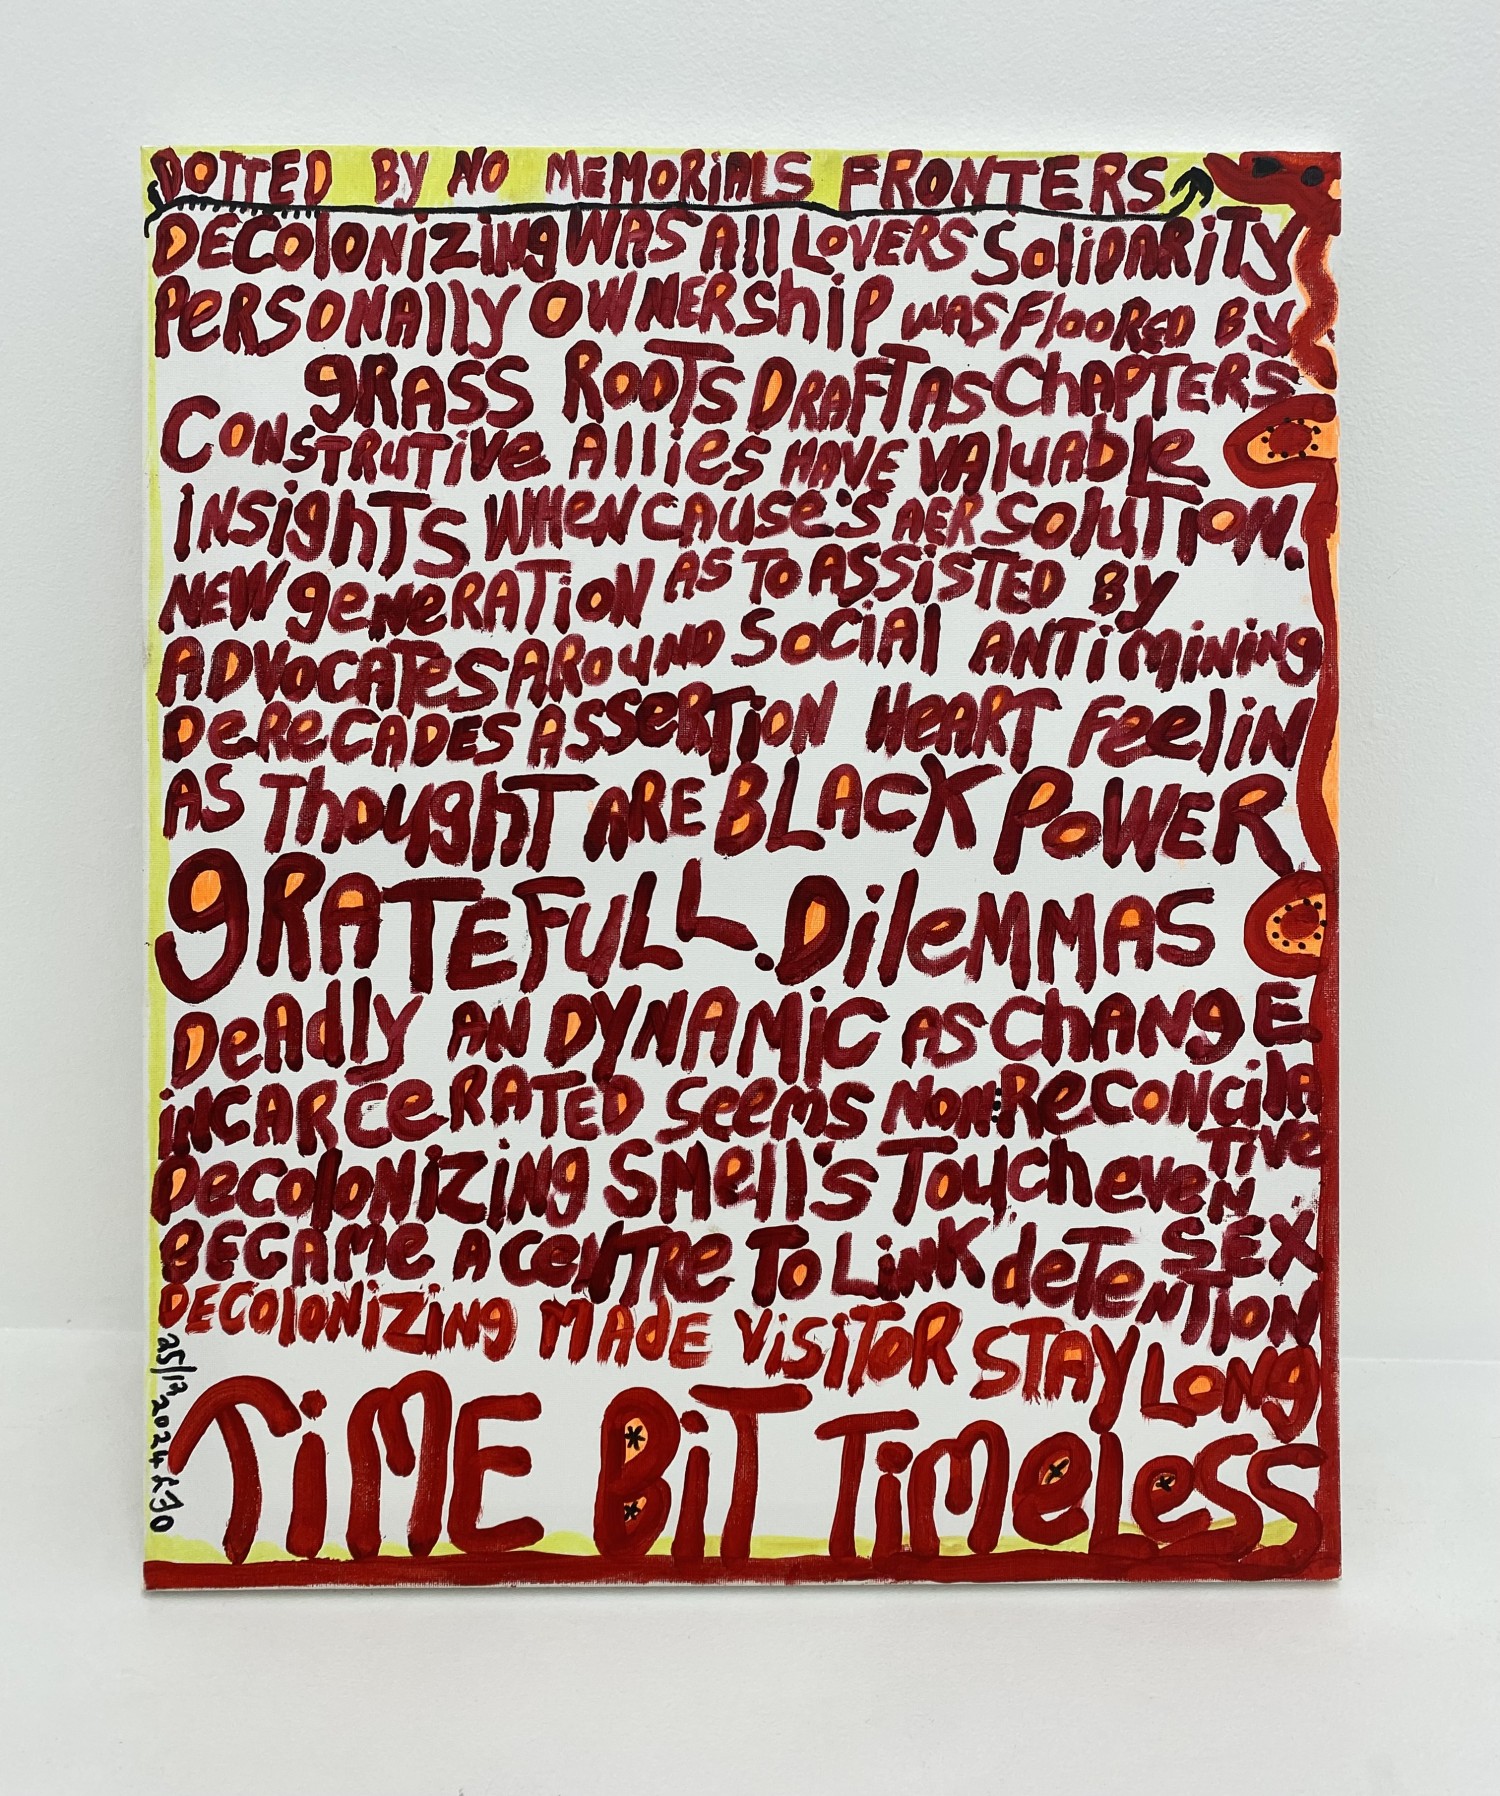 DOTTED BY NO MEMORIALS FRONTERS
DECOlONIZING WAS All LOVERS SOliDARiTY
PERSONAllY OWNERShiP WAS FlOORED BY
gRASS ROOTS DRAFT AS ChAPTERS
CONSTRUTiVe Allies HAVE VAluAble
INSighTS WHeN CAuse's AER SOluTiON.
NEW geNeRATiON AS TO ASSiSTED BY
ADVOCATeS AROuND SOCiAl ANTi MiNiNg
DeReCADES ASSeRTiON HeART FeeliN
AS ThOughT ARE BLACK POWER
gRATEFULL. DileMMAS
DeAdly AN DYNAMiC AS ChANgE
iNCARCeRATED SeemS NON:ReCONCiliA
TiVe
DeCOlONiZiNg SMell's TOuCh eveN
SEX
BECAMe A CeNTRe TO LiNK deTeNTiON
DECOlONiZiNg MAdE ViSiTOR STAY LONg
TiME BiT TiMeleSS
25/12 2024 £30